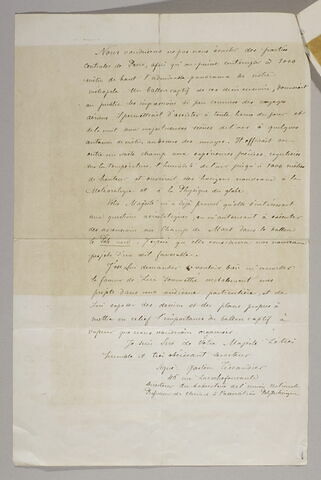 Nous voudrions ne pas nous écarter des parties
centrales de Paris, afin qu'on puisse contempler à 1000
mètres de haut l'admirable panorama de notre
métropole. Un ballon captif de ces dimensions, donnant
au public les impressions si peu connues des voyages
aériens, permettrait d'assister à toute heure du jour et
de la nuit aux majestueuses scènes de l'air à quelques
au dessus des nuages. Il offrirait en
outre un vaste champ aux expériences précises, régulières
sur la température, l'humidité de l'air jusqu'à 1000 mètres
de hauteur et ouvrirait des horizons nouveaux à la
Météorologie et à la Physique du globe.
Votre Majesté m'a déjà prouvé qu'elle s'intéressait
aux questions aérostatiques, en m'autorisant à exécuter
des ascensions au Champ de Mars dans le ballon
le Pôle nord. J'espère qu'elle considérera nos nouveaux
projets d'un œil favorable.
J'ose lui demander de vouloir bien m'accorder
la faveur de lui soumettre verbalement nos
projets dans une audience particulière, et de
lui exposer des dessins et des plans propres à
mettre en relief l'importance du ballon captif à
vapeur que nous voudrions organiser.
Je suis Sire de Votre Majesté le très
humble et très obéissant serviteur
Signé Gaston Tissandier
rue Larochefoucauld
Directeur du laboratoire de l'union nationale
Professeur de chimie à l'association Polytechnique